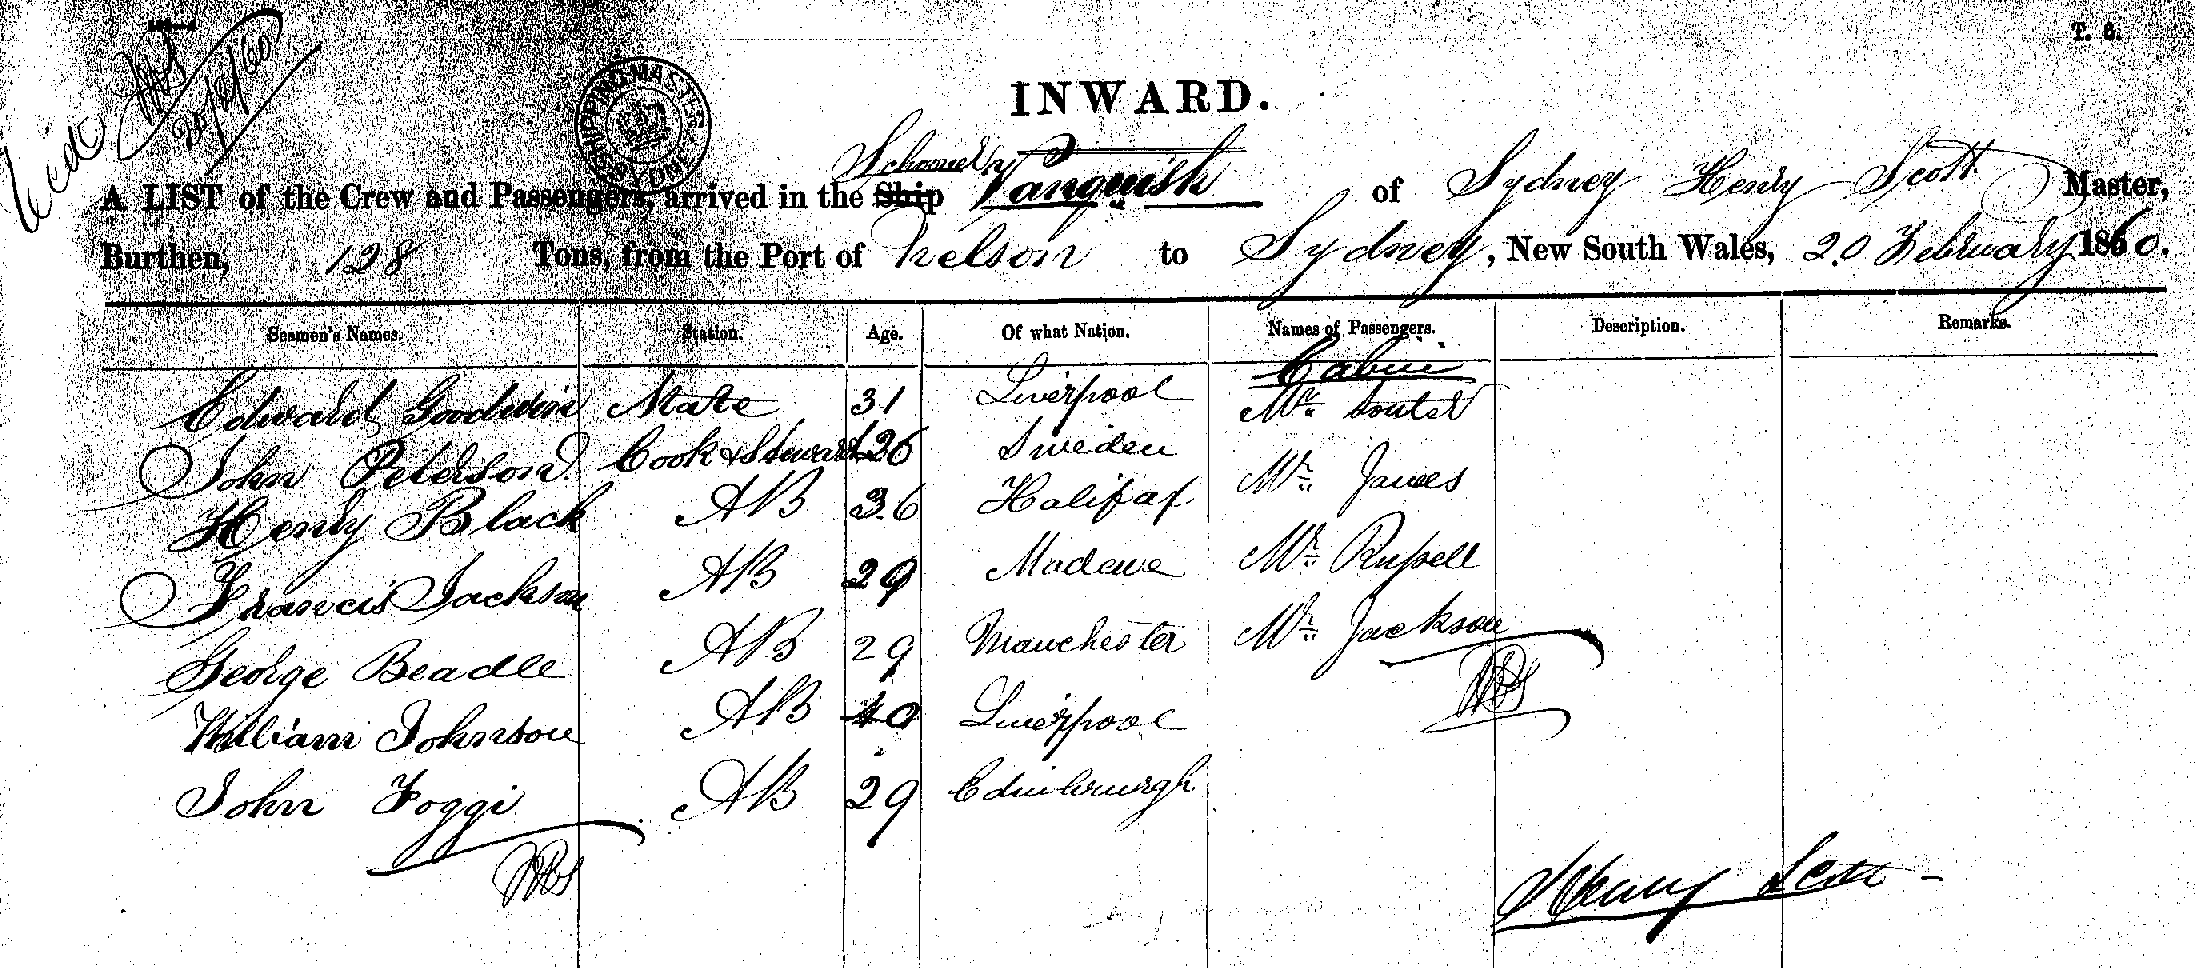 T. 8.
20/2/60
SHIPPING MASTER'S
SYDNEY
INWARD.
Schooner
A LIST of the Crew and Passengers, arrived in the Ship Vanquish of Sydney Henry Scott Master,
Burthen, 128 Tons, from the Port of Nelson to Sydney, New South Wales, 20 February 1860.
Seamen's Names. Station. Age. Of what Nation. Names of Passengers. Description. Remarks.
Cabin
Edward Goodwin Mate 31 Liverpool Mr. Souter
John Peterson Cook & Steward 26 Sweden Mr. James
Henry Black AB 36 Halifax
Francis Jackson AB 29 Mr. Russell
George Beadle AB 29 Manchester Mr. Jackson
William Johnson AB 40 Liverpool
John Foggi AB 29 Edinbrurgh
Henry Scott